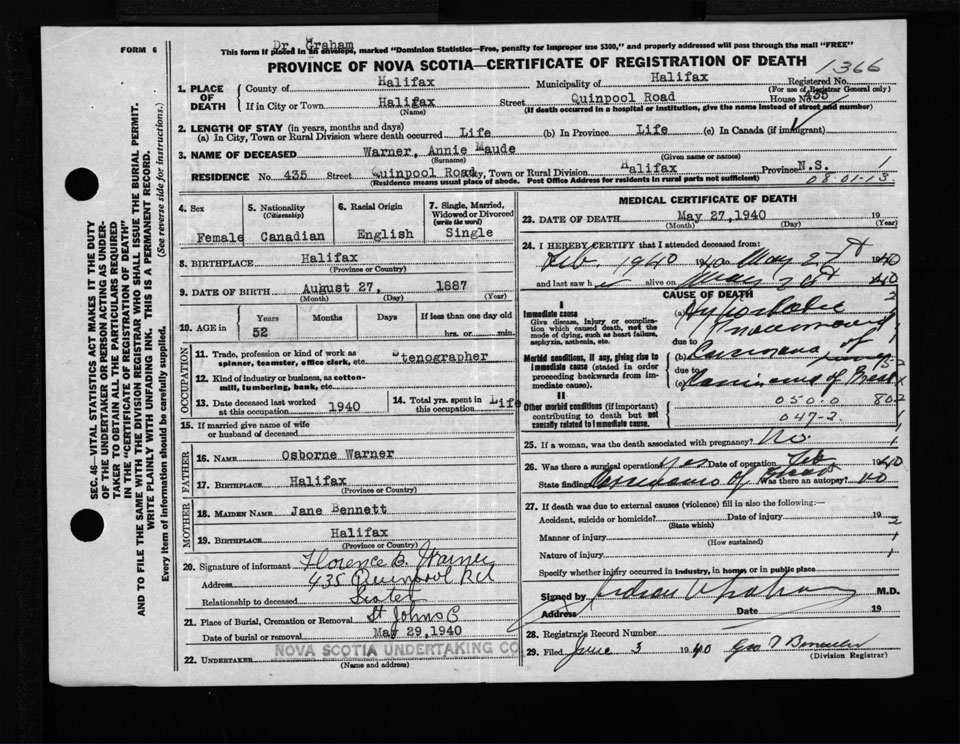 FORM 6
Dr. Graham
This form if placed in an envelope, marked "Dominion Statistics—Free, penalty for improper use $300," and properly addressed will pass through the mail "FREE"
PROVINCE OF NOVA SCOTIA—CERTIFICATE OF REGISTRATION OF DEATH
1366
1. PLACE OF DEATH
County of Halifax Municipality of Halifax Registered No.
(For use of Registrar General only)
If in City or Town Halifax Street Quinpool Road House No. 435
(Name) (If death occurred in a hospital or institution, give the name instead of street and number)
2. LENGTH OF STAY (in years, months and days)
(a) In City, Town or Rural Division where death occurred Life (b) In Province Life (c) In Canada (if immigrant)
3. NAME OF DECEASED Warner, Annie Maude
(Surname) (Given name or names)
RESIDENCE No. 435 Street Quinpool Road City, Town or Rural Division Halifax Province N.S. 1
(Residence means usual place of abode. Post Office Address for residents in rural parts not sufficient) 08-01-13
4. Sex
Female
5. Nationality
(Citizenship)
Canadian
6. Racial Origin
English
7. Single, Married, Widowed or Divorced
(write the word)
Single
8. BIRTHPLACE Halifax
(Province or Country)
9. DATE OF BIRTH August 27, 1887
(Month) (Day) (Year)
10. AGE in
Years Months Days If less than one day old
52 hrs. or min.
OCCUPATION
11. Trade, profession or kind of work as spinner, teamster, office clerk, etc. Stenographer
12. Kind of industry or business, as cotton-mill, lumbering, bank, etc.
13. Date deceased last worked at this occupation 1940
14. Total yrs. spent in this occupation Life
15. If married give name of wife or husband of deceased
FATHER
16. NAME Osborne Warner
17. BIRTHPLACE Halifax
(Province or Country)
MOTHER
18. MAIDEN NAME Jane Bennett
19. BIRTHPLACE Halifax
(Province or Country)
20. Signature of informant Florence B. Warner
Address 435 Quinpool Rd
Relationship to deceased Sister
21. Place of Burial, Cremation or Removal St Johns C
Date of burial or removal May 29, 1940
22. UNDERTAKER NOVA SCOTIA UNDERTAKING CO
(Name and address)
MEDICAL CERTIFICATE OF DEATH
23. DATE OF DEATH May 27, 1940 19
(Month) (Day) (Year)
24. I HEREBY CERTIFY that I attended deceased from:
Feb. 1940 1940 May 27 1940
and last saw h alive on May 1940
CAUSE OF DEATH 2
I
Immediate cause
Give disease, injury or complication which caused death, not the mode of dying, such as heart failure, asphyxia, asthenia, etc.
(a) Hypostatic
Pneumonia
due to
Morbid conditions, if any, giving rise to immediate cause (stated in order proceeding backwards from immediate cause).
(b) Carcinoma of
due to
(c) Carcinoma of Breast
II
Other morbid conditions (if important) contributing to death but not causally related to immediate cause.
0500 802
047-2 1
25. If a woman, was the death associated with pregnancy? No. 1
26. Was there a surgical operation? Yes Date of operation Feb 1940
State findings Carcinoma of Breast Was there an autopsy? no
27. If death was due to external causes (violence) fill in also the following:—
Accident, suicide or homicide? Date of injury 19 2
(State which)
Manner of injury 1
(How sustained)
Nature of injury 1
Specify whether injury occurred in industry, in home or in public place
Signed by M.D.
Address Date 19
28. Registrar's Record Number
29. Filed June 3 1940 Geo
(Division Registrar)
SEC. 46—VITAL STATISTICS ACT MAKES IT THE DUTY
OF THE UNDERTAKER OR PERSON ACTING AS UNDER-
TAKER TO OBTAIN ALL THE PARTICULARS REQUIRED
IN THE "CERTIFICATE OF REGISTRATION OF DEATH"
AND TO FILE THE SAME WITH THE DIVISION REGISTRAR WHO SHALL ISSUE THE BURIAL PERMIT.
WRITE PLAINLY WITH UNFADING INK. THIS IS A PERMANENT RECORD.
Every item of information should be carefully supplied. (See reverse side for instructions.)